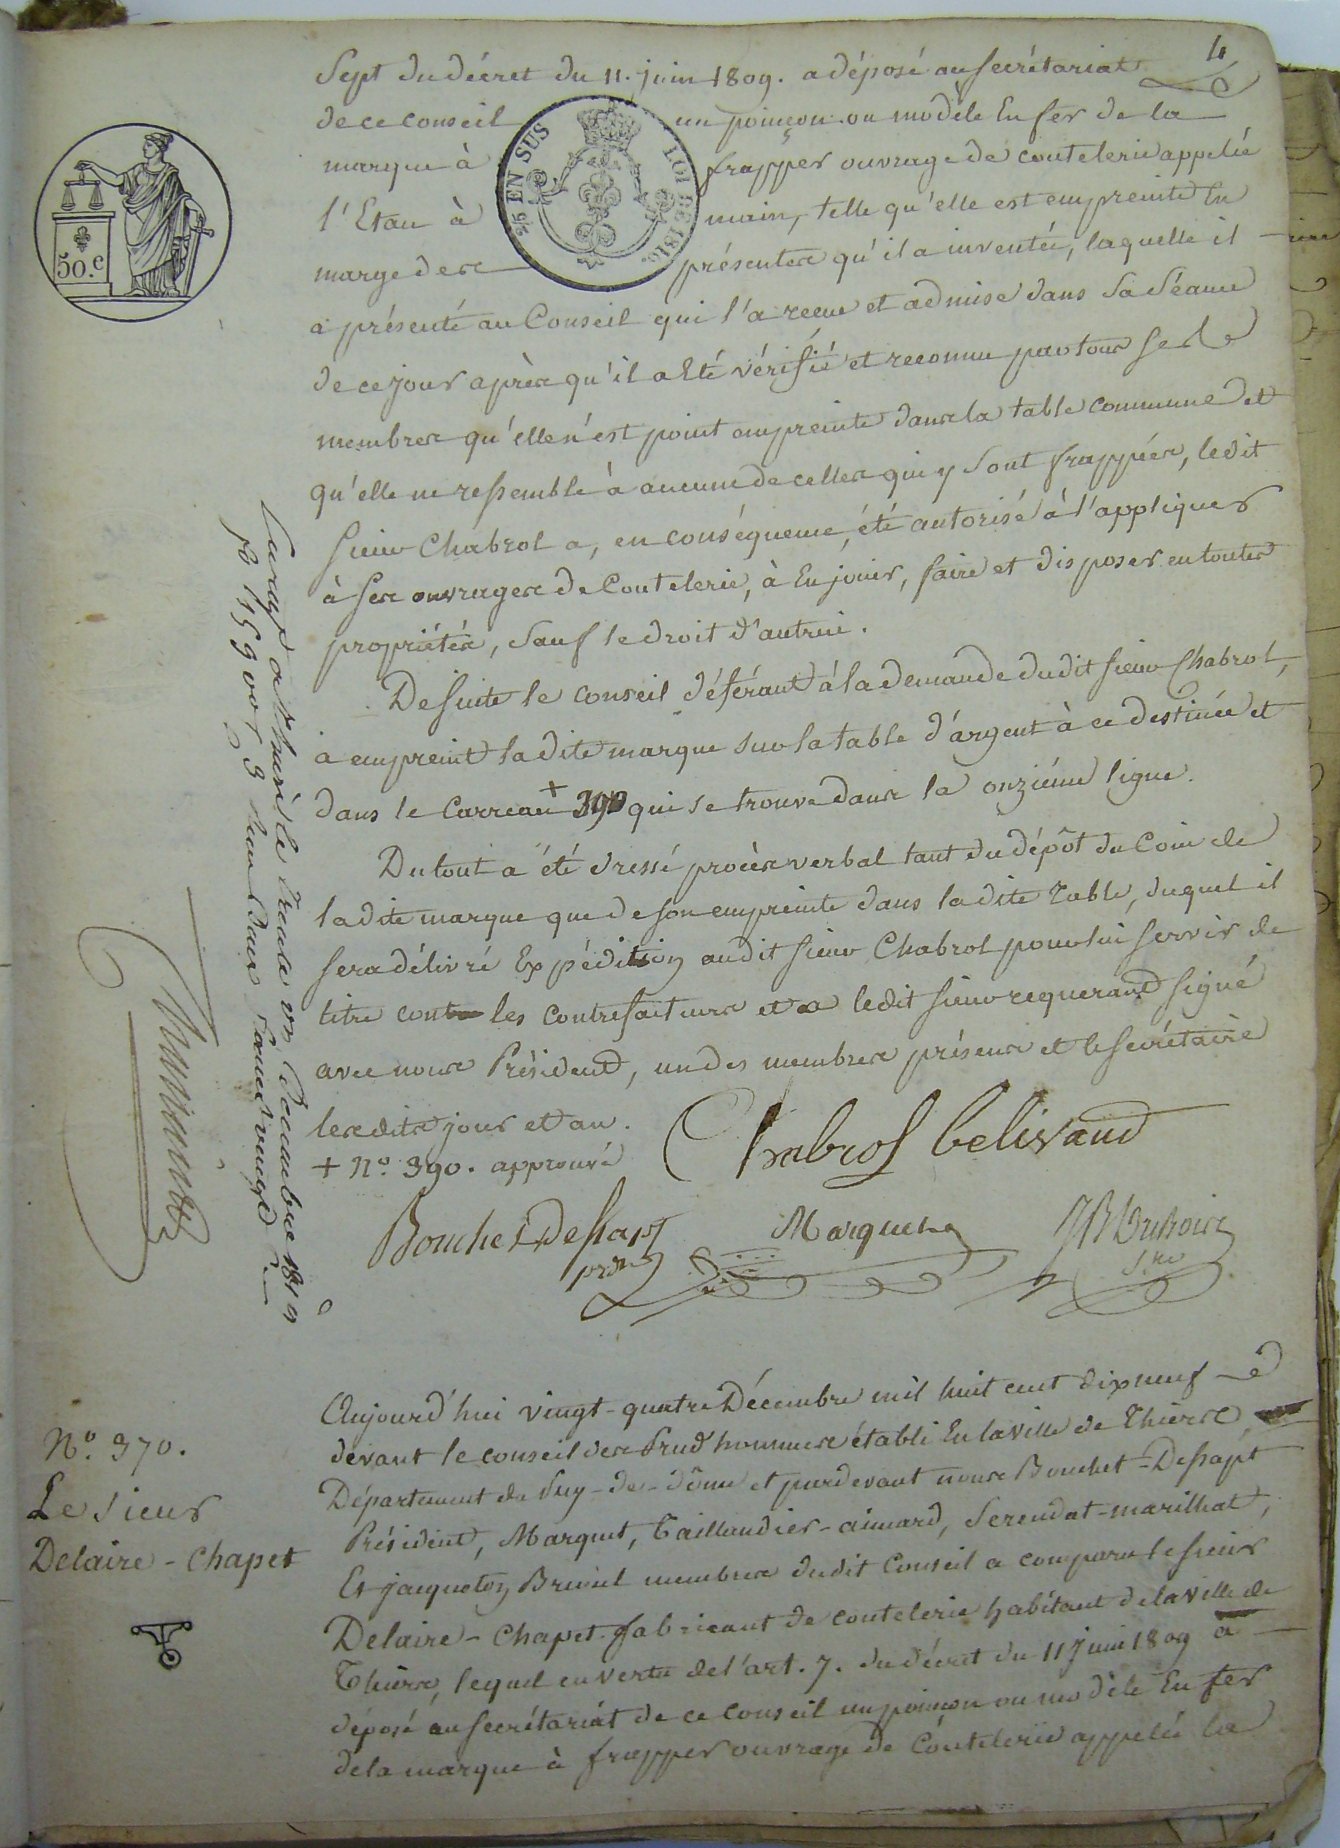 4
Sept du décret du 11. juin 1809. a déposé au secrétariat
de ce conseil un poinçon ou modèle En fer de la
marque à frapper ouvrage de coutelerie appelée
l'Etau à main, telle qu'elle est empreinte En
marge des présentes qu'il a inventée, laquelle il
a présenté au Conseil qui l'a reçue et admise dans sa séance
de ce jour après qu'il a Eté vérifié et reconnu par tous ses
membres qu'elle n'est point empreinte dans la table commune et
qu'elle ne ressemble à aucune de celles qui y sont frappées, ledit
sieur Chabrol a, en conséquence, été autorisé à l'appliquer
à ses ouvrages de Coutelerie, à En jouir, faire et disposer en toutes
propriétés, sauf le droit d'autrui.
De suite le conseil déférant à la demande dudit sieur Chabrol,
a empreint ladite marque sur la table d'argent à ce destinée et
dans le Carreau + 390 qui se trouve dans la onzième ligne.
Du tout a été dressé procès verbal tant du dépôt du Coin de
ladite marque que de son empreinte dans ladite Table, duquel il
sera délivré Expédition audit sieur Chabrol pour lui servir de
titre contre les contrefacteurs et a ledit sieur requerant signé
avec nous Président, un des membres présens et le secrétaire
lesdits jour et an.
+ N.o 390. approuvé
Chabrol belivaud
Bouchet Dessapt
prdt
Marquet
JB Dufroir
S.re
50.c
2/5 EN SUS
LOI DE 1816.
Enregistré à Thiers le trente un Décembre 1819
Aujourd'hui vingt-quatre Décembre mil huit cent dix neuf
devant le conseil des Prud'hommes établi En la ville de Thiers,
Département du Puy-de-dôme et pardevant nous Bouchet-Dessapt
Président, Marquet, Taillandier-aimard, Serendat-marilhat,
Et jacqueton Brunel membres dudit Conseil a comparu le sieur
Delaire-Chapet fabricant de coutelerie habitant de la ville de
Thiers, lequel en vertu de l'art. 7. du décret du 11 juin 1809 a
déposé au secrétariat de ce conseil un poinçon ou modèle En fer
de la marque à frapper ouvrage de Coutelerie appelée la
N.o 370.
Le sieur
Delaire-Chapet